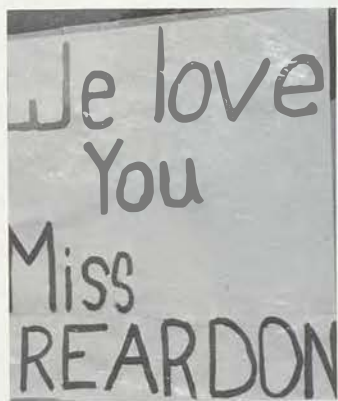 We love
You
Miss
REARDON